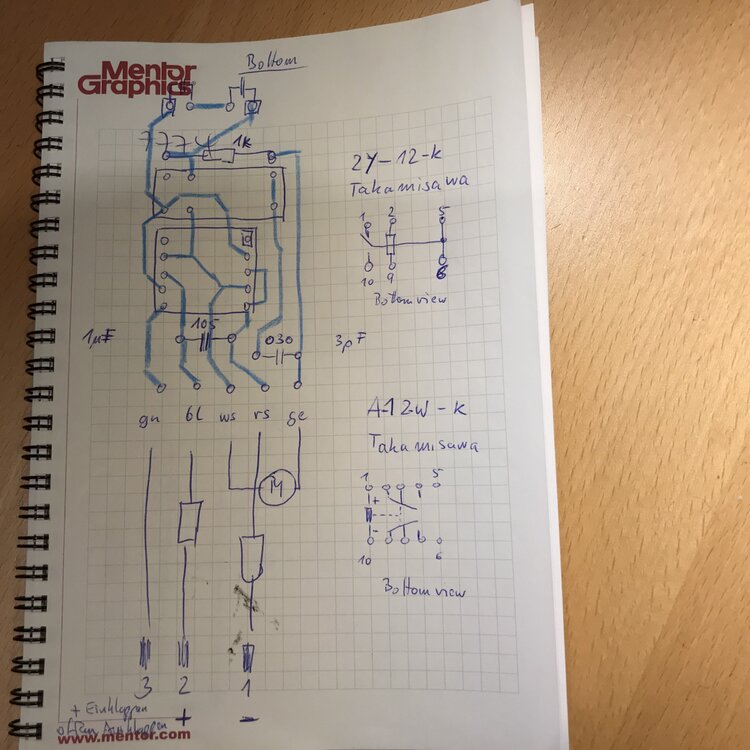 Bottom
Mentor
Graphics
1k
2Y-12-K
Takamisawa
1 2 5
10 9 6
Bottom view
1µF
105
030
3pF
gn bl ws rs ge
A-12-W-K
Takamisawa
M
1 5
+
-
10 6
Bottom view
3 2 1
+ Einklappen
+ -
www.mentor.com